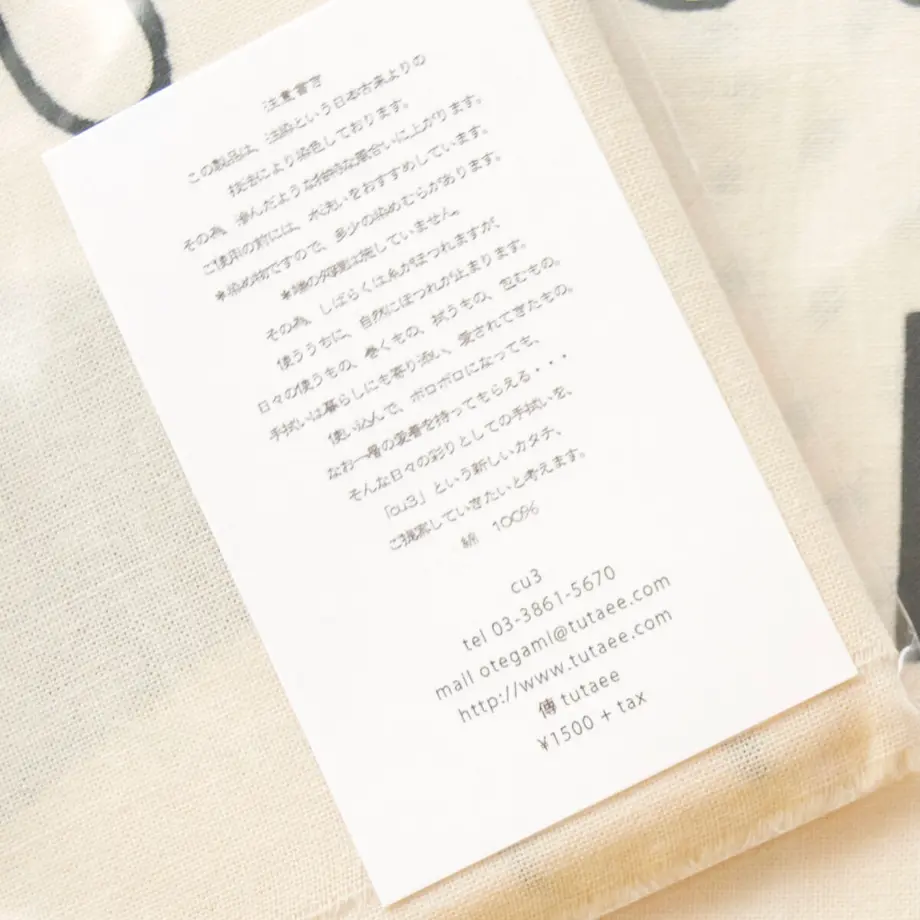 注意書き
この製品は、注染という日本古来よりの
技法により染色しております。
その為、滲んだような独特な風合いに上がります。
ご使用の前には、水洗いをおすすめしています。
＊染め物ですので、多少の染めむらがあります。
＊端の処理は施していません。
その為、しばらくは糸がほつれますが、
使ううちに、自然にほつれが止まります。
日々の使うもの、巻くもの、拭うもの、包むもの。
手拭いは暮らしにも寄り添い、愛されてきたもの。
使い込んで、ボロボロになっても、
なお一層の愛着を持ってもらえる・・・
そんな日々の彩りとしての手拭いを、
「cu3」という新しいカタチ、
ご提案していきたいと考えます。
綿 100%
cu3
tel 03-3861-5670
mail otegami@tutaee.com
http://www.tutaee.com
傳 tutaee
¥1500 + tax